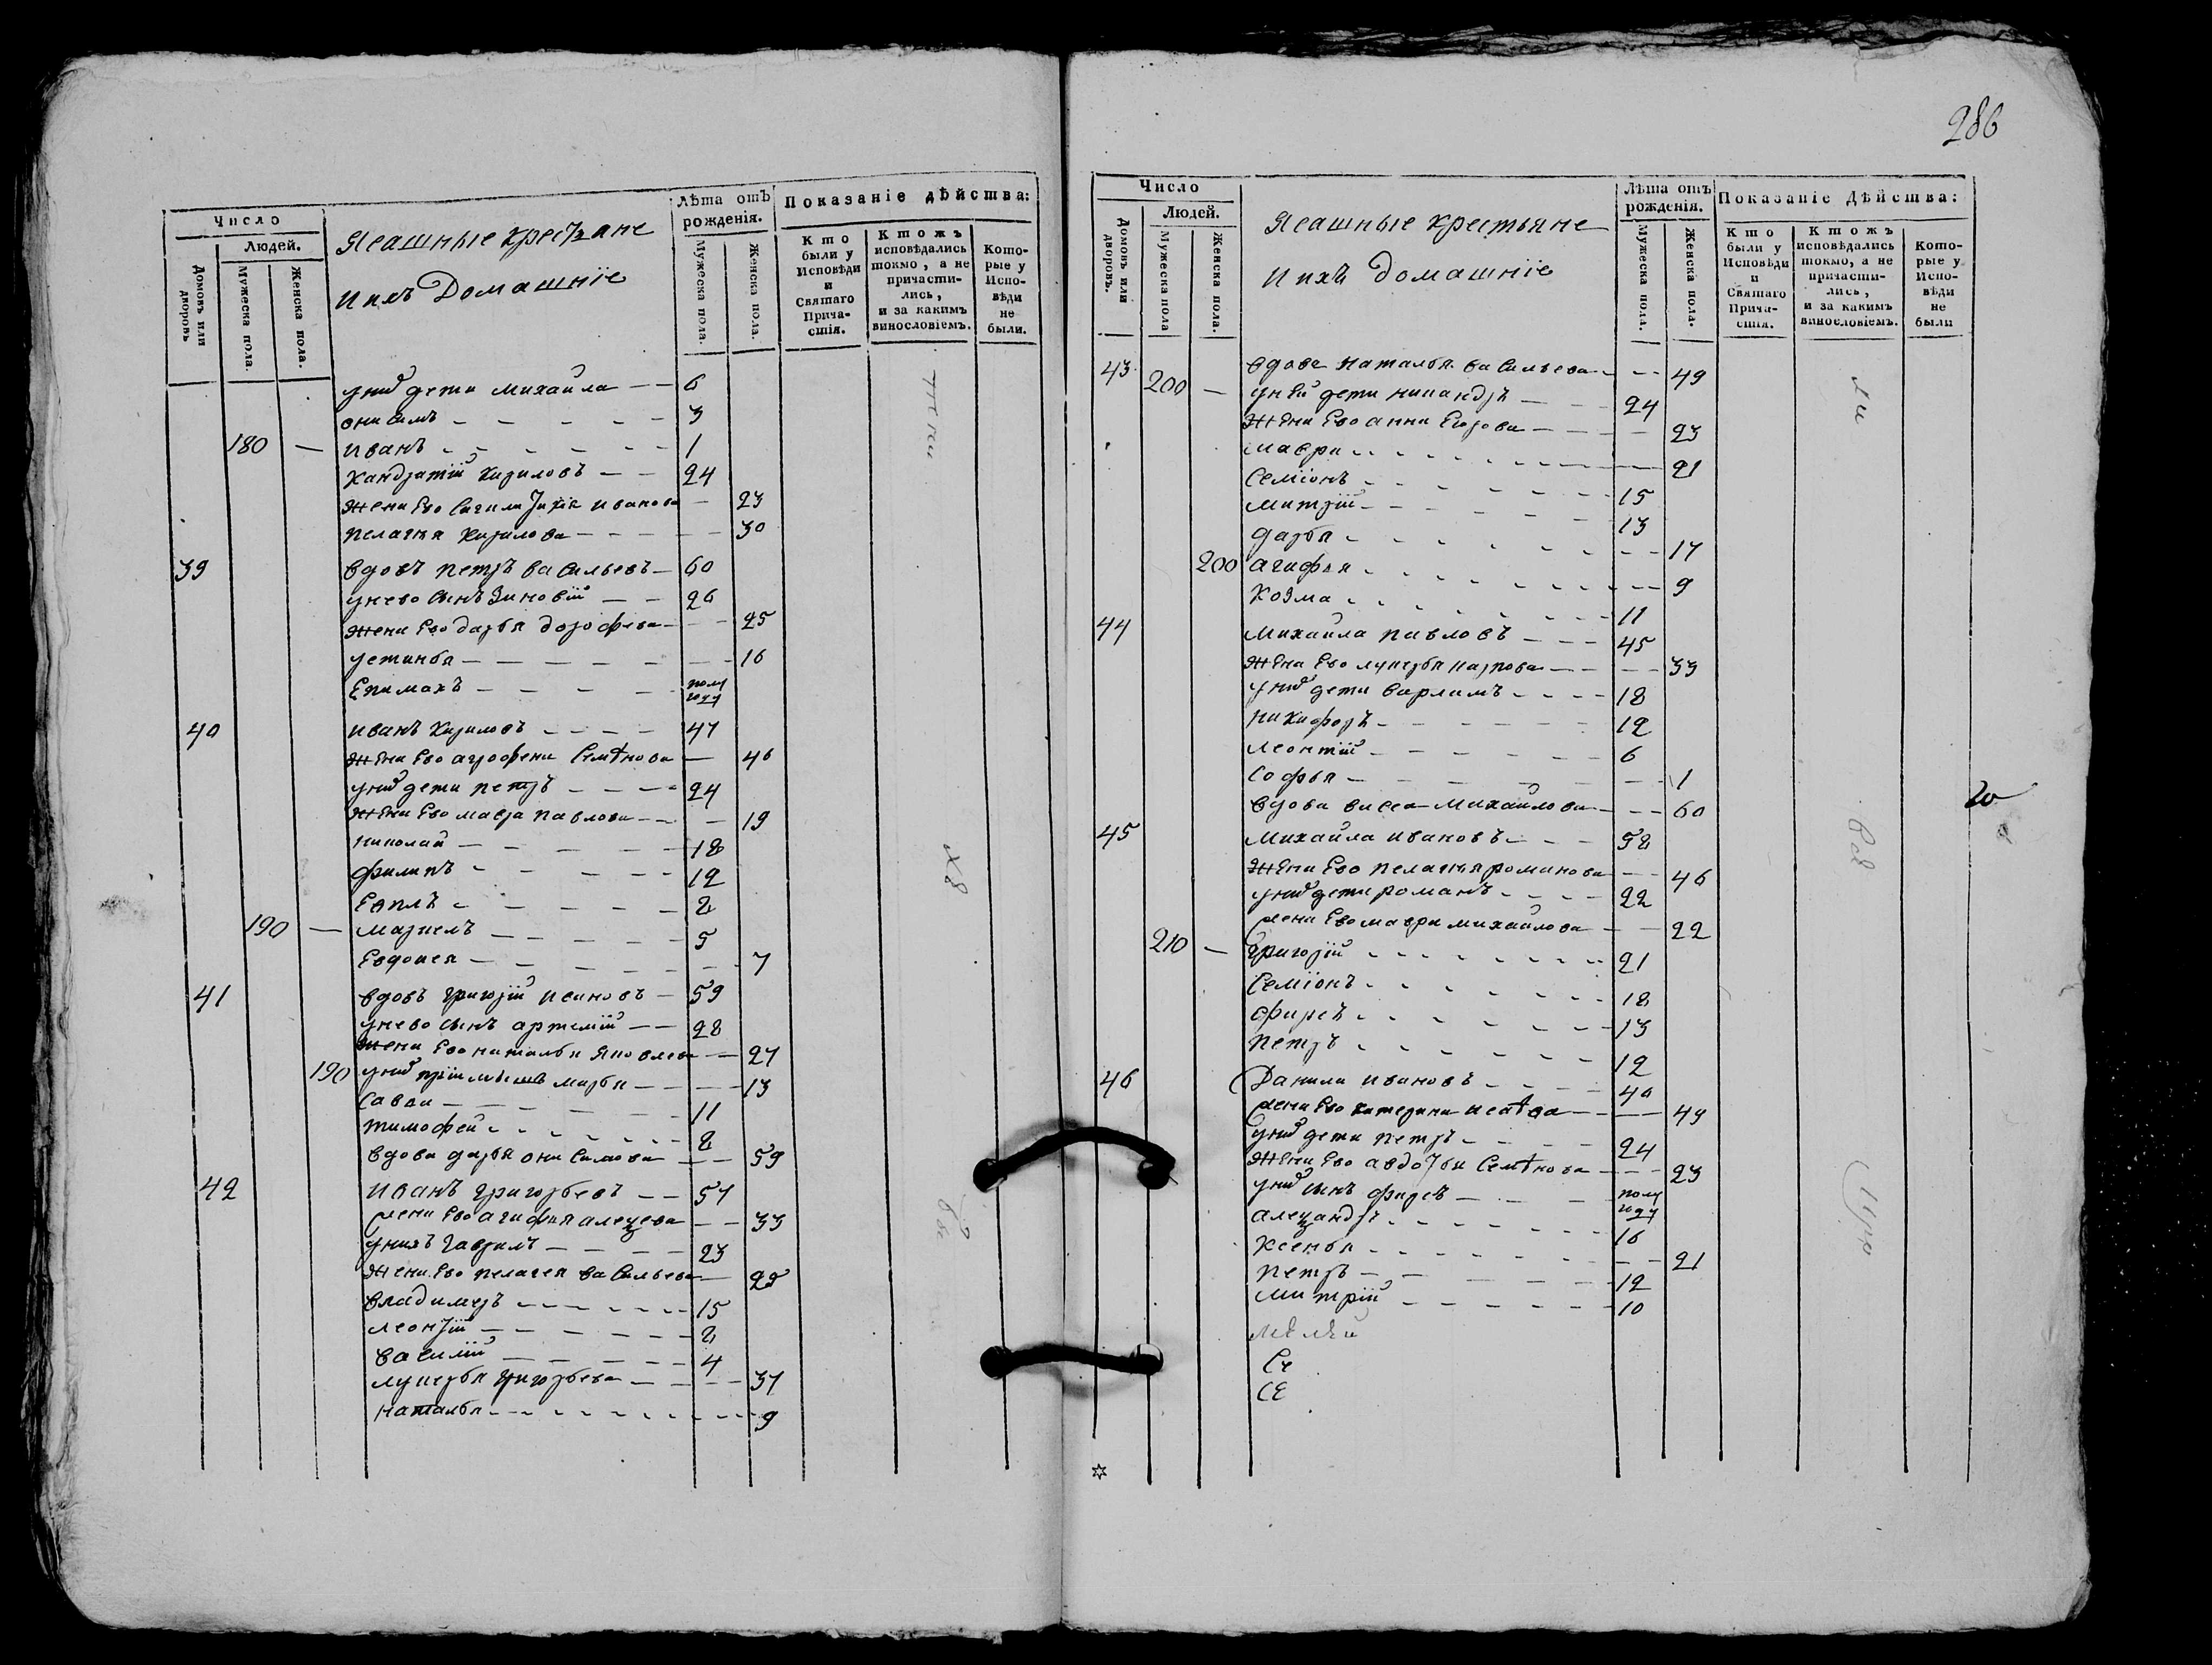 286
Число
Людей.
Домовъ или дворовъ
Мужеска пола.
Женска пола.
Ясашные крестьяне
и ихъ Домашніе
Лѣта отъ рожденія.
Мужеска пола.
Женска пола.
Показаніе дѣйства:
Кто были у Исповѣди и Святаго Причастія.
Ктожъ исповѣдались токмо, а не причастились, и за какимъ винословіемъ.
Которые у Исповѣди не были.
у них дети Михаила — — 6
онисимъ — 3
180 — иванъ — 1
кандратій кириловъ — 24
жена ево ивановa — 23
пелагея кирилова — 30
39 вдовъ петръ васильевъ — 60
у нево сынъ Зиновій — 26
жена ево дарья дорофеева — 25
устинья — 16
Епимахъ — полугоду
40 иванъ кириловъ — 47
жена ево агрофена семѣнова — 46
у них дети петръ — 24
жена ево мавра павлова — 19
николай — 18
филипъ — 12
Евплъ — 8
190 — маркелъ — 5
Евдокея — 7
41 вдовъ григорій ивановъ — 59
у нево сынъ артемій — 28
жена ево наталья яковлева — 27
190 у них марья — 13
савва — 11
тимофей — 8
вдова дарья онисимова — 59
42 иванъ григорьевъ — 57
жена ево агафья алексева — 33
у нихъ гаврилъ — 23
жена ево пелагея васильева — 25
владимеръ — 15
леонтій — 8
василій — 4
лукерья григорьева — 37
наталья — 9
Число
Людей.
Домовъ или дворовъ.
Мужеска пола
Женска пола.
Ясашные крестьяне
и ихъ домашніе
Лѣта отъ рожденія.
Мужеска пола.
Женска пола.
Показаніе Дѣйства:
Кто были у Исповѣди и Святаго Причастія.
Ктожъ исповѣдались токмо, а не причастились, и за какимъ винословіемъ.
Которые у Исповѣди не были
43 вдова наталья васильева — 49
200 — у ней дети никандръ — 24
жена ево анна Егорова — 23
мавра — 21
семіонъ — 15
митрій — 13
дарья — 17
200 агафья — 9
козма — 11
44 михаила павловъ — 45
жена ево лукерья карпова — 33
у них дети варламъ — 18
никифоръ — 12
леонтій — 6
софья — 1
вдова васса михайлова — 60
45 михаила ивановъ — 58
жена ево пелагея романова — 46
у них дети романъ — 22
жена ево мавра михайлова — 22
210 — григорій — 21
семіонъ — 18
фирсъ — 13
петръ — 12
46 Данила ивановъ — 40
жена ево катерина — 49
у них дети петръ — 24
жена ево авдотья семѣнова — 23
у них сынъ фирсъ — полугоду
александръ — 16
ксенья — 21
петръ — 12
митрій — 10
Се
СЕ